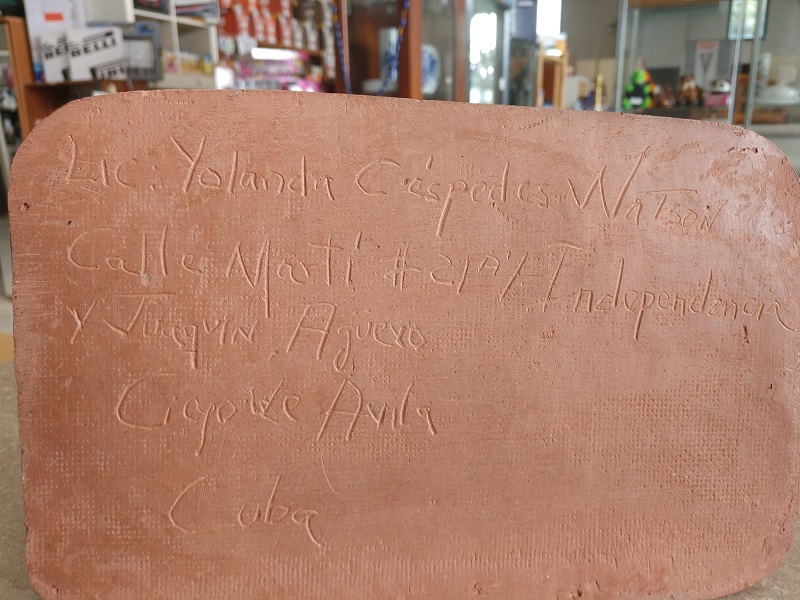 Lic. Yolanda Céspedes Watson
Calle Martí # 219 / Independencia
Y Juaquin Agüero
Ciego de Avila
Cuba